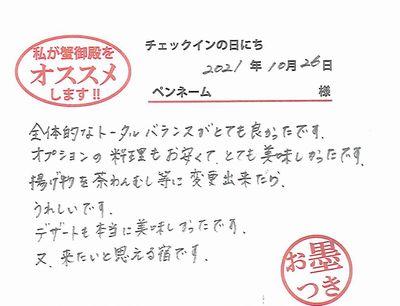 私が蟹御殿を
オススメ
します!!
チェックインの日にち
2021年10月26日
ペンネーム 様
全体的なトータルバランスがとても良かったです。
オプションの料理もお安くて、とても美味しかったです。
揚げ物を茶わんむし等に変更出来たら、
うれしいです。
デザートも本当に美味しかったです。
又、来たいと思える宿です。
お墨
つき